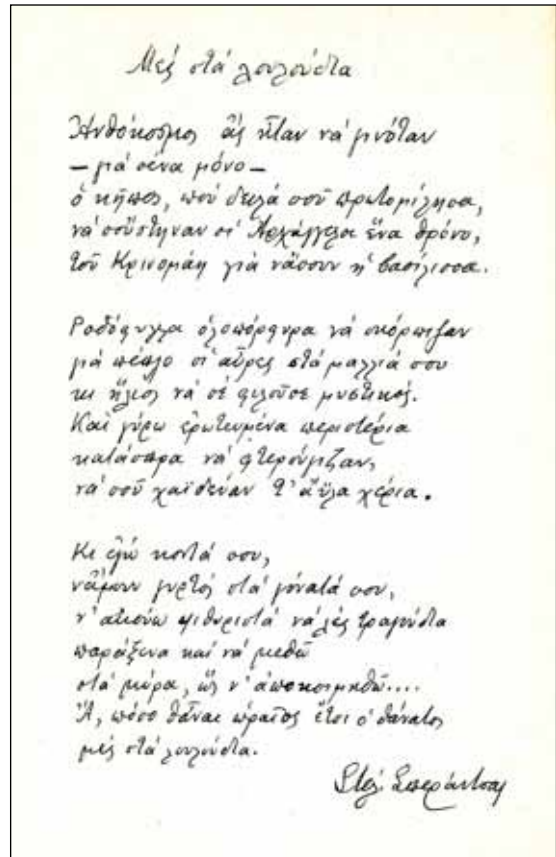 Μές στά λουλούδια
Ἀνθόκοσμος ἄς ἦταν νά γινόταν
— γιά σένα μόνο —
ὁ κῆπος, πού δειλά σοῦ πρωτομίλησα,
νά σοὔστηναν οἱ Ἀρχάγγελοι ἕνα θρόνο,
τοῦ Κρινομάη γιά νἄσουν ἡ βασίλισσα.
Ροδόφυλλα ὁλοπόρφυρα νά σκόρπιζαν
γιά πέπλο οἱ αὖρες στά μαλλιά σου
κι ἥλιος νά σέ φιλοῦσε μυστικός.
Καί γύρω ἐρωτευμένα περιστέρια
κατάσπρα νά φτερούγιζαν,
νά σοῦ χαϊδεύαν τ' ἄϋλα χέρια.
Κι ἐγώ κοντά σου,
νἄμουν γυρτός στά γόνατά σου,
ν' ἀκούω ψιθυριστά νά λές τραγούδια
παράξενα καί νά μεθῶ
στά μύρα, ὥς ν' ἀποκοιμηθῶ....
Ἄ, πόσο θἆναι ὡραῖος ἔτσι ὁ θάνατος
μές στά λουλούδια.
Στέλ. Σπεράντσας